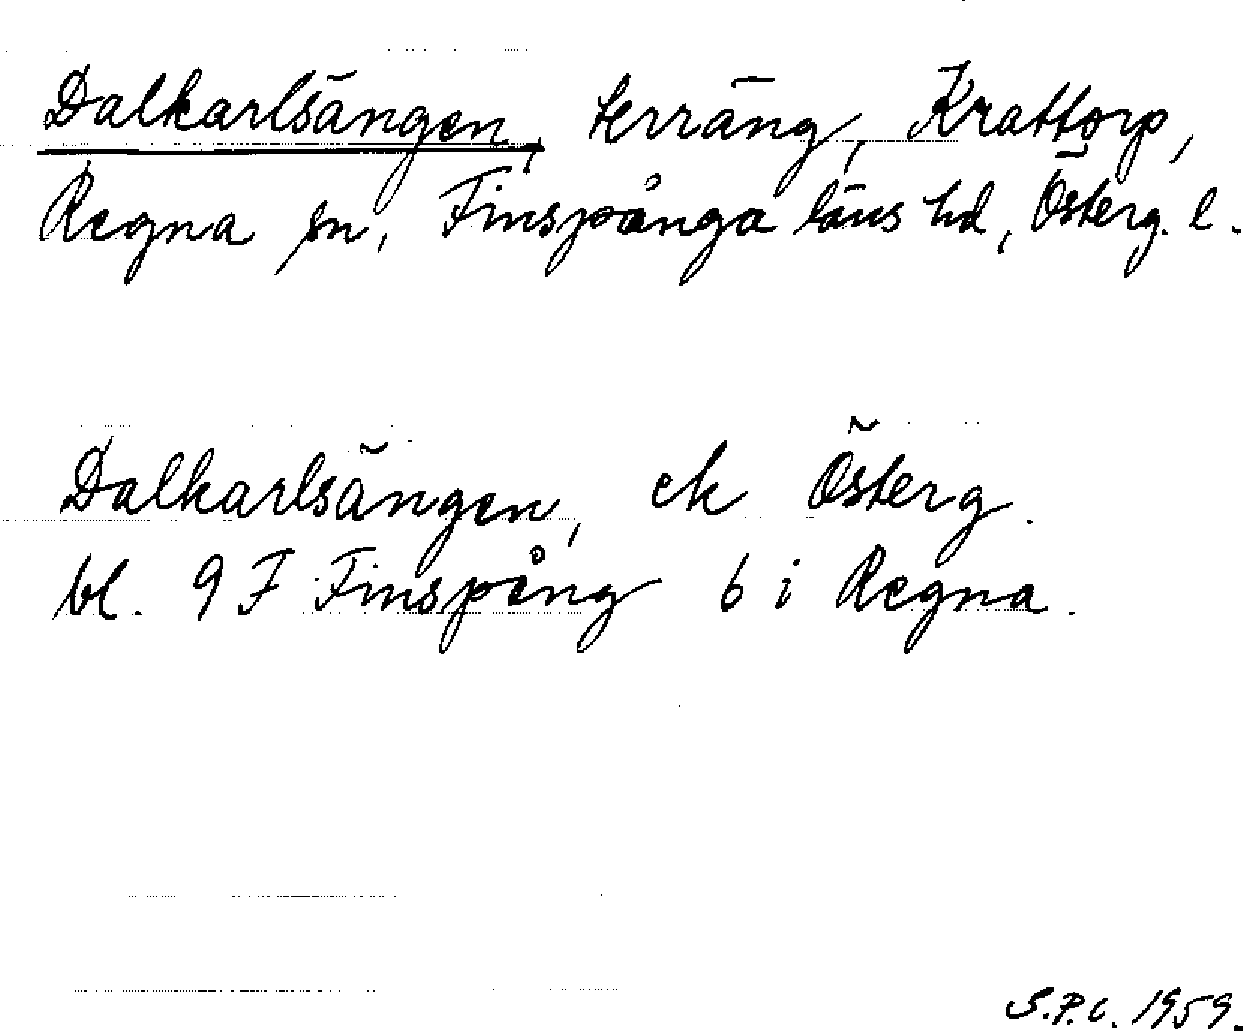 Dalkarlsängen, terräng, Krattorp,
Regna sn, Finspånga läns hd, Österg. l.
Dalkarlsängen, ek Österg.
bl. 9 F Finspång 6 i Regna.
S.P.C. 1959.